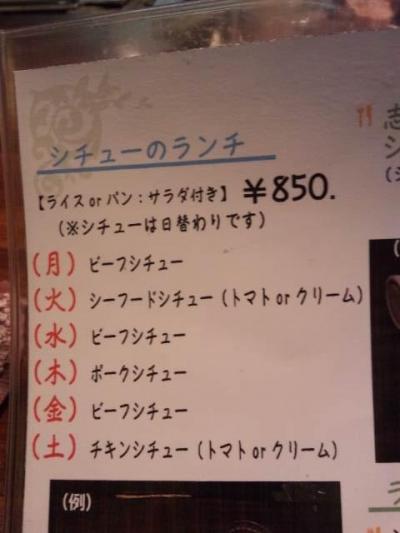 シチューのランチ
【ライスorパン：サラダ付き】 ￥850.
（※シチューは日替わりです）
（月） ビーフシチュー
（火） シーフードシチュー（トマトorクリーム）
（水） ビーフシチュー
（木） ポークシチュー
（金） ビーフシチュー
（土） チキンシチュー（トマトorクリーム）
（例）
志
シ